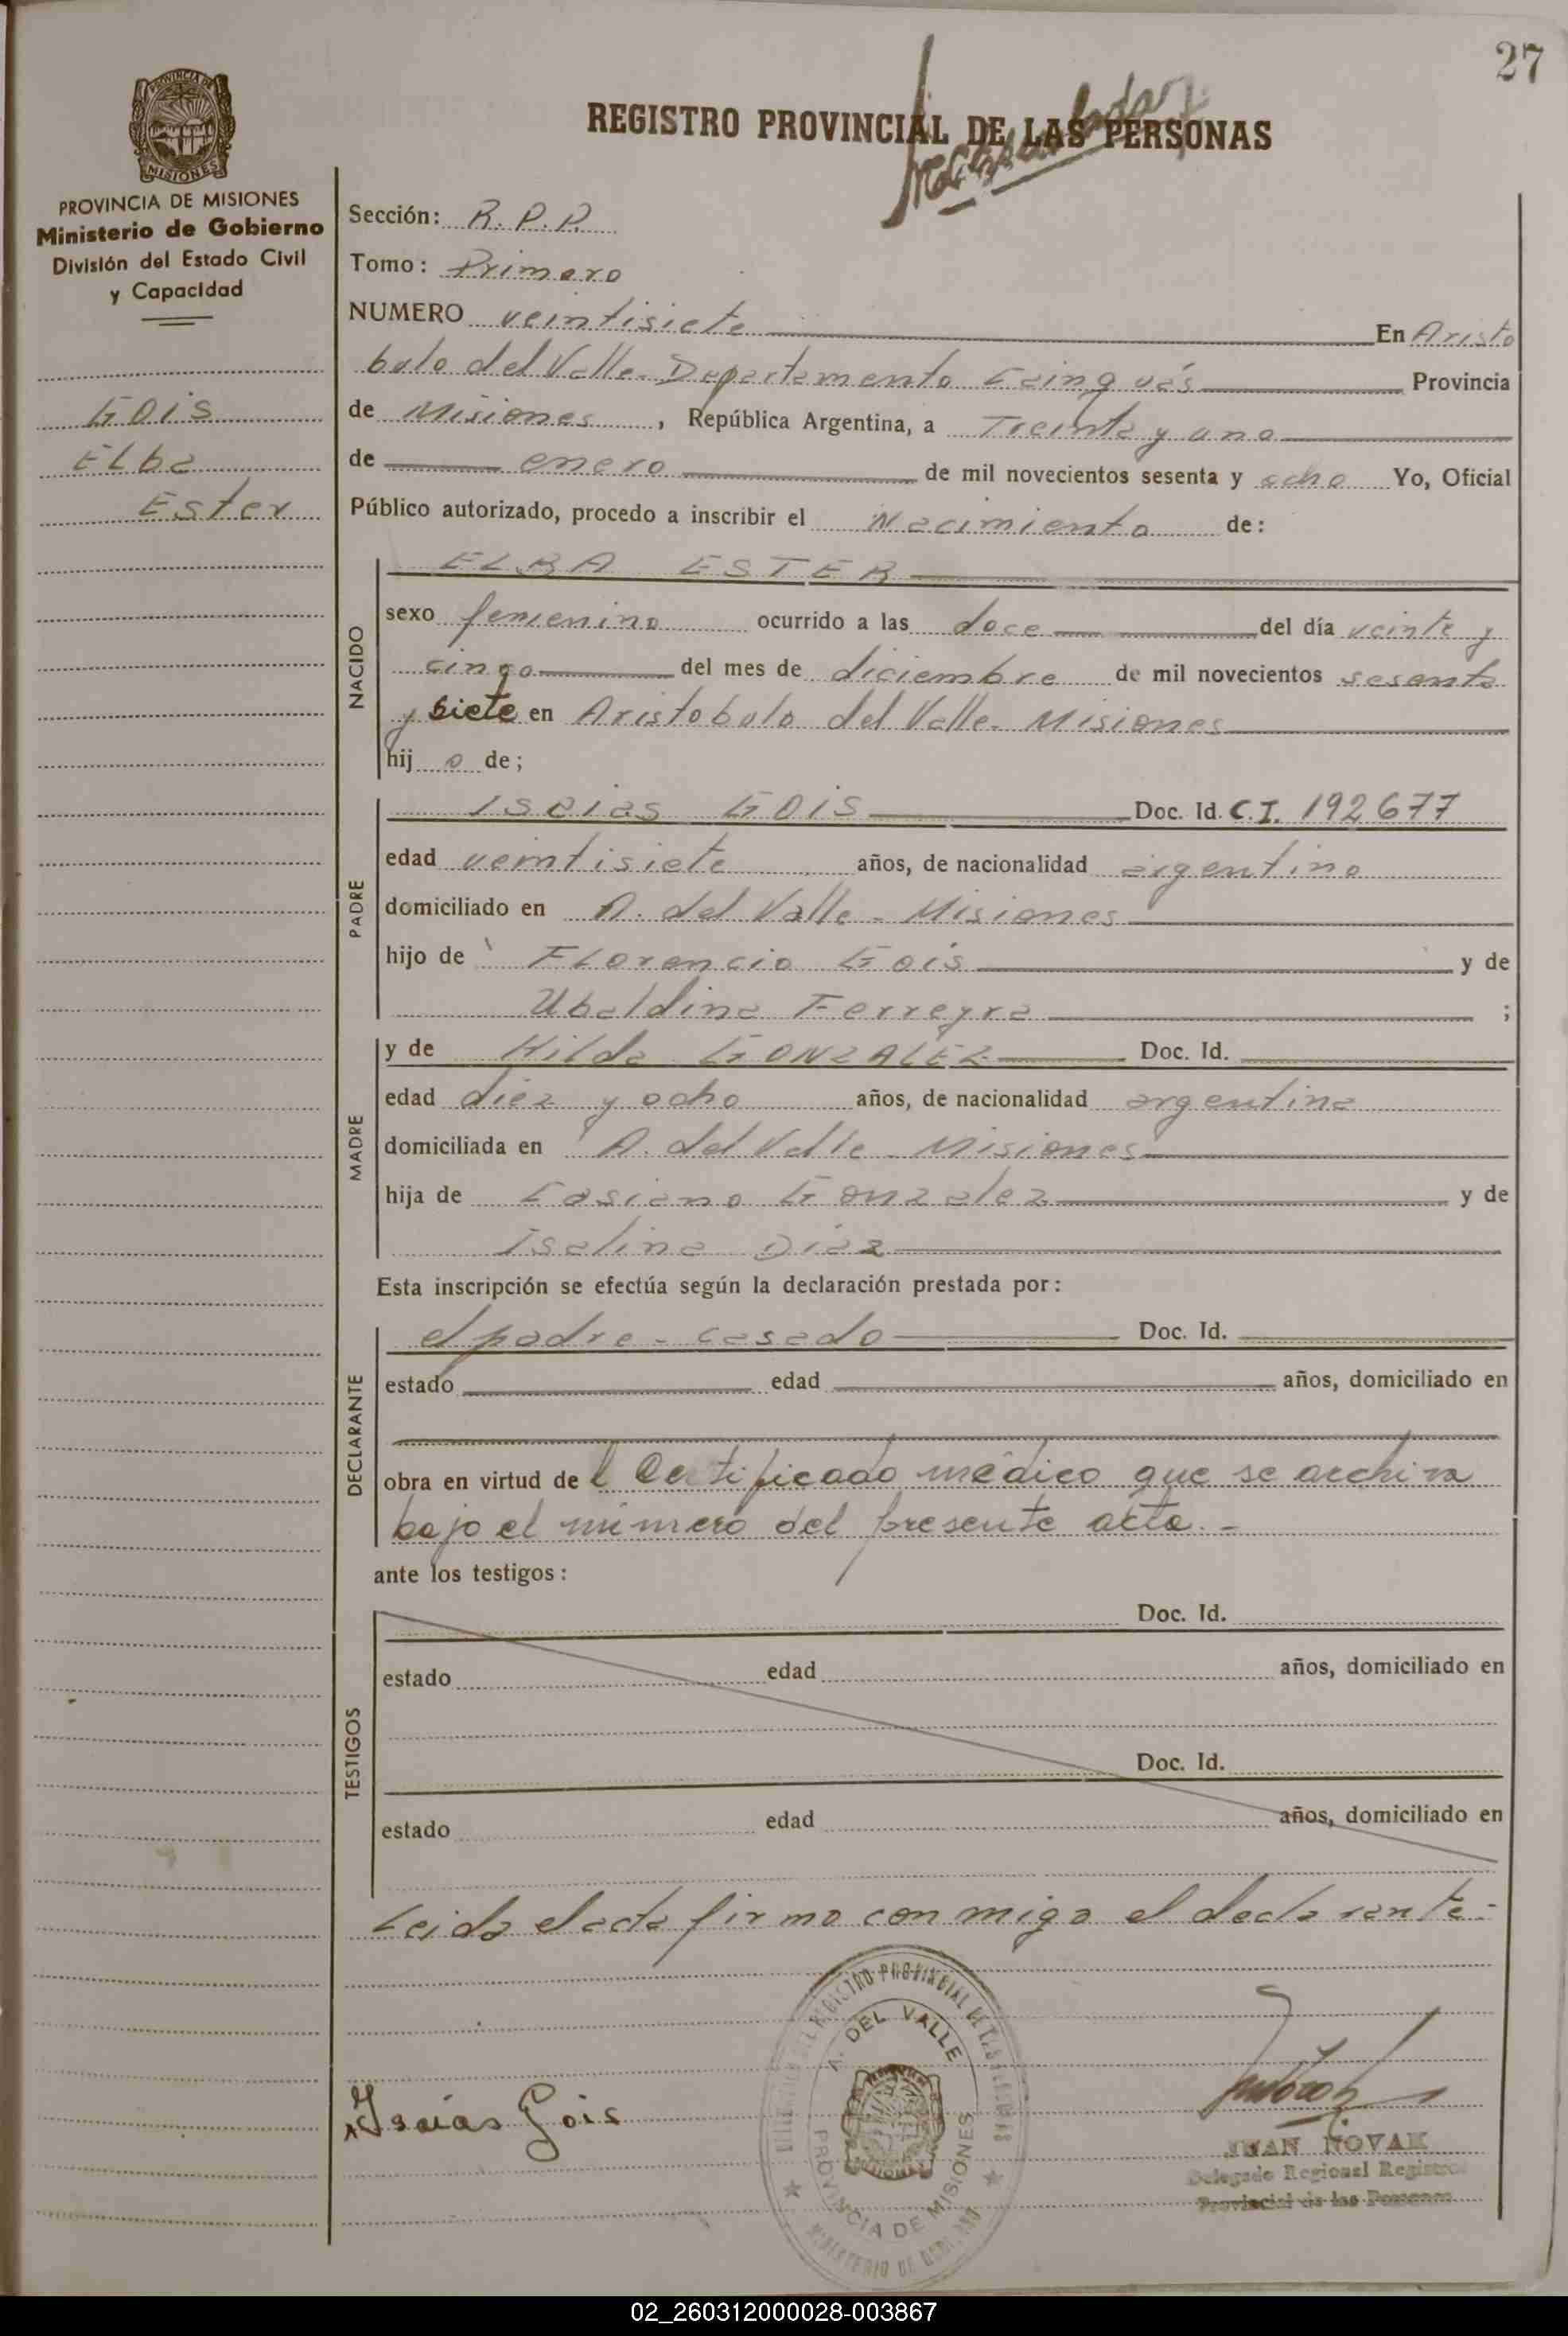 27
PROVINCIA DE
MISIONES
PROVINCIA DE MISIONES
Ministerio de Gobierno
División del Estado Civil
y Capacidad
Gois
Elba
Ester
REGISTRO PROVINCIAL DE LAS PERSONAS
Sección: R.P.P.
Tomo: Primero
NUMERO veintisiete En Aristo
bulo del Valle. Departamento Cainguás Provincia
de Misiones, República Argentina, a Treinta y uno
de enero de mil novecientos sesenta y ocho Yo, Oficial
Público autorizado, procedo a inscribir el Nacimiento de:
NACIDO
ELBA ESTER
sexo femenino ocurrido a las doce del día veinte y
cinco del mes de diciembre de mil novecientos sesenta
y siete en Aristobulo del Valle. Misiones
hij o de;
PADRE
Isaias GOIS Doc. Id. C.I. 192677
edad veintisiete años, de nacionalidad argentino
domiciliado en A. del Valle - Misiones
hijo de Florencio Gois y de
Ubaldina Ferreyra ;
MADRE
y de Hilda GONZALEZ Doc. Id.
edad diez y ocho años, de nacionalidad argentina
domiciliada en A. del Valle - Misiones
hija de Casiano Gonzalez y de
Isalina Diaz
Esta inscripción se efectúa según la declaración prestada por:
DECLARANTE
el padre - casado Doc. Id.
estado edad años, domiciliado en
obra en virtud de l Certificado médico que se archiva
bajo el número del presente acta. -
ante los testigos:
TESTIGOS
Doc. Id.
estado edad años, domiciliado en
Doc. Id.
estado edad años, domiciliado en
Leida el acta firmo con migo el declarante-
REGISTRO PROVINCIAL DE LAS PERSONAS
A. DEL VALLE
PROVINCIA DE MISIONES
MINISTERIO DE GOBIERNO
Isaías Gois
JUAN NOVAK
Delegado Regional Registro
Provincial de las Personas
02_260312000028-003867